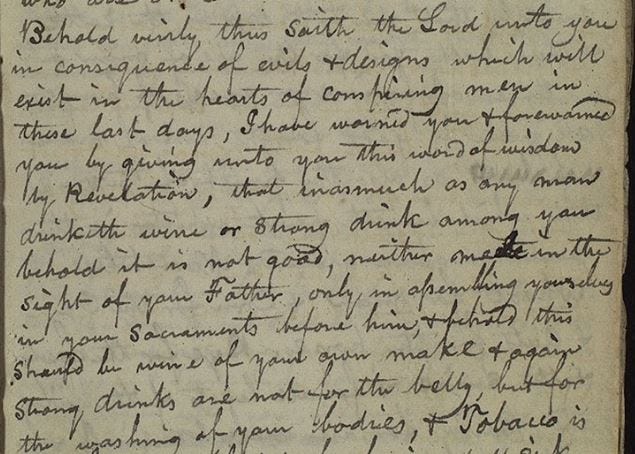 who are
Behold virily thus saith the Lord unto you
in consequence of evils & designs which will
exist in the hearts of conspiring men in
these last days, I have warned you & forewarned
you by giving unto you this word of wisdom
by Revelation, that inasmuch as any man
drinketh wine or Strong drink among you
behold it is not good, neither meete in the
sight of your Father, only in assembling yourselves
in your Sacraments before him, & behold this
Should be wine of your own make & again
Strong drinks are not for the belly, but for
the washing of your bodies, & Tobacco is